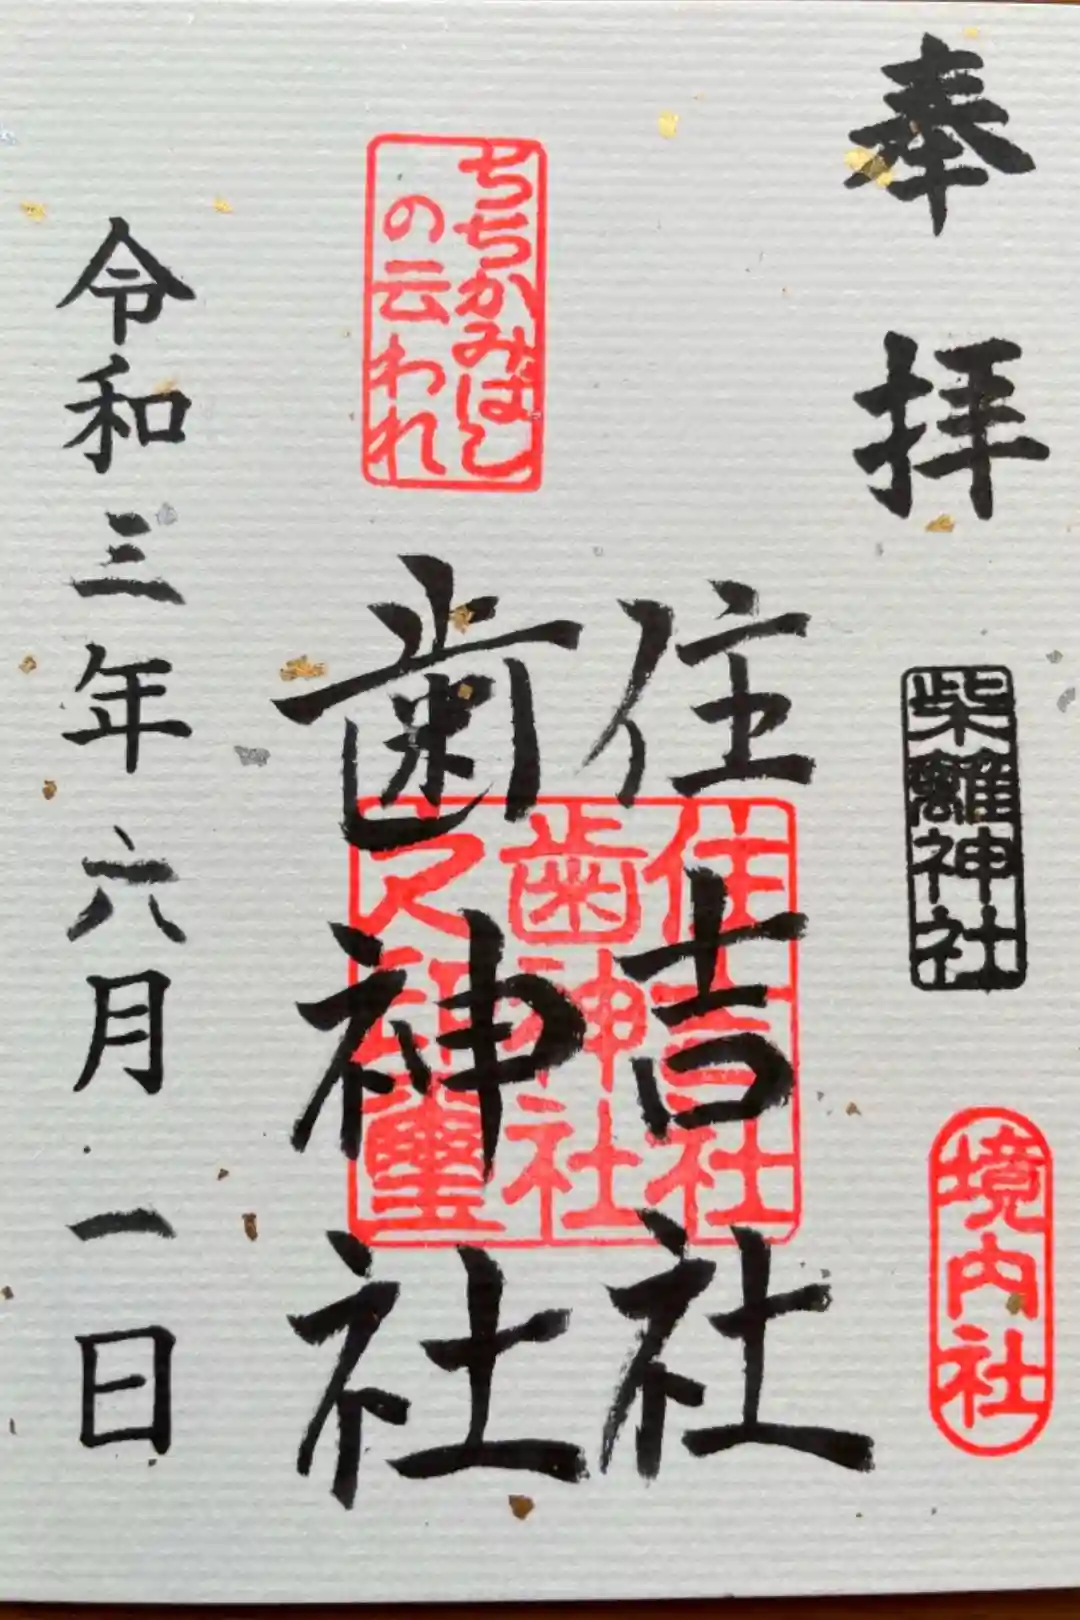 奉拝
柴籬神社
境内社
住吉社
歯神社
住吉社
歯神社
之御璽
ちちかみばし
の云われ
令和三年六月一日